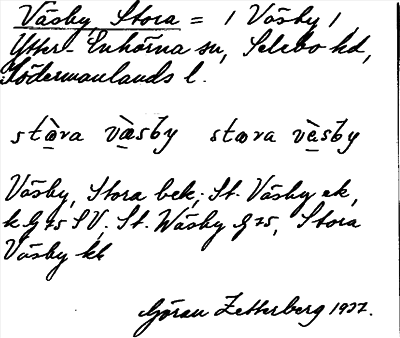 Väsby, Stora = / Väsby /
Ytter-Enhörna sn, Selebo hd,
Södermanlands l.
stœ̀ra væ̀sby stœra vèsby
Väsby, Stora bek.; St. Väsby ek,
k G 75 SV, St. Wäsby G 75, Stora
Väsby kk
Göran Zetterberg 1937.